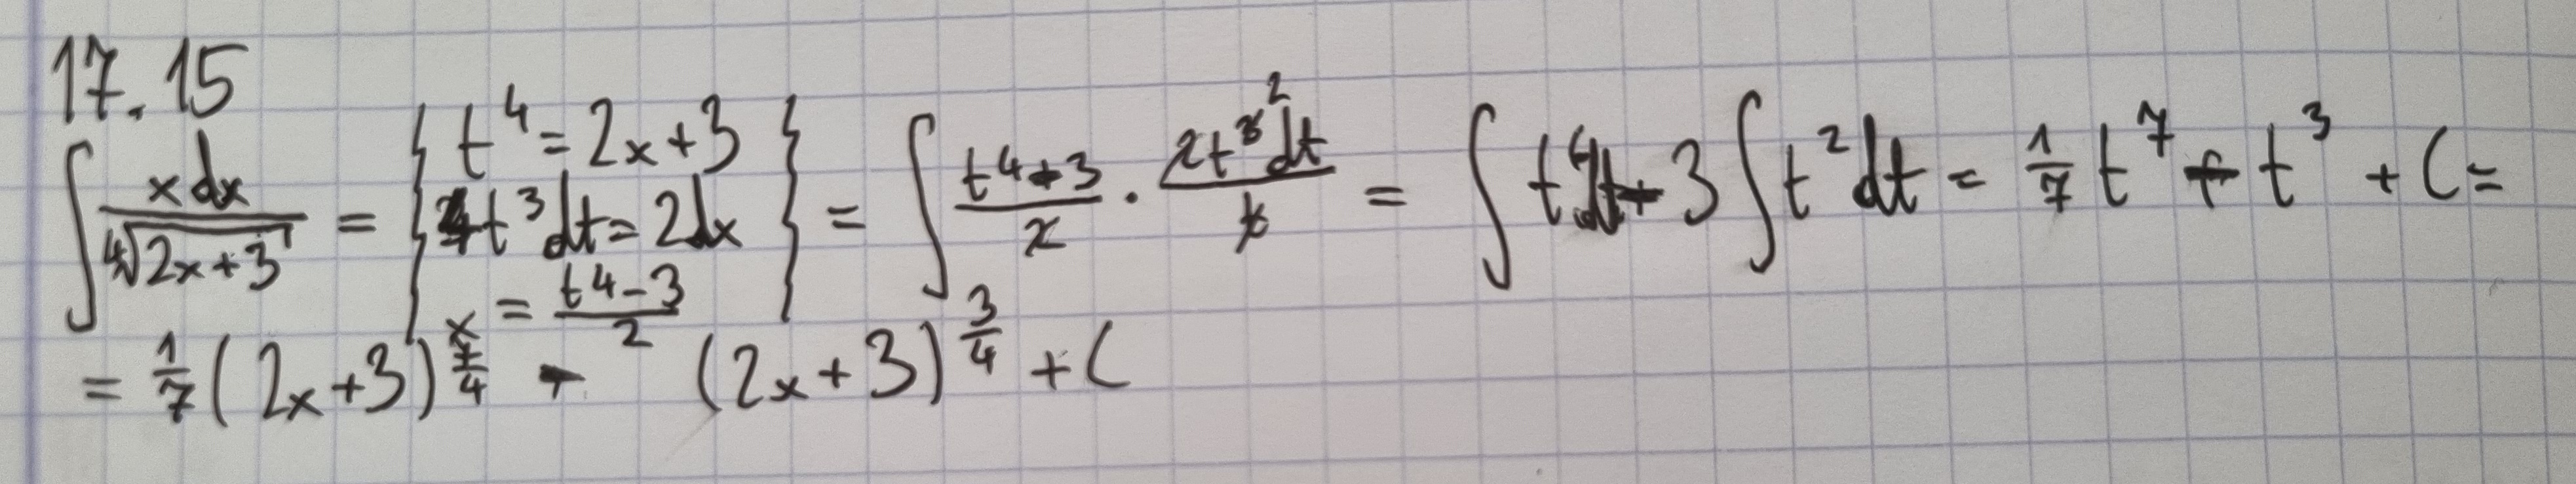 17.15
∫ x dx / ⁴√(2x+3) = { t⁴ = 2x+3 ; 4t³dt = 2dx ; x = (t⁴-3)/2 } = ∫ (t⁴-3)/2 · 2t³dt/t = ∫ t⁶dt - 3∫ t²dt = 1/7 t⁷ - t³ + C =
= 1/7 (2x+3)^(7/4) - (2x+3)^(3/4) + C